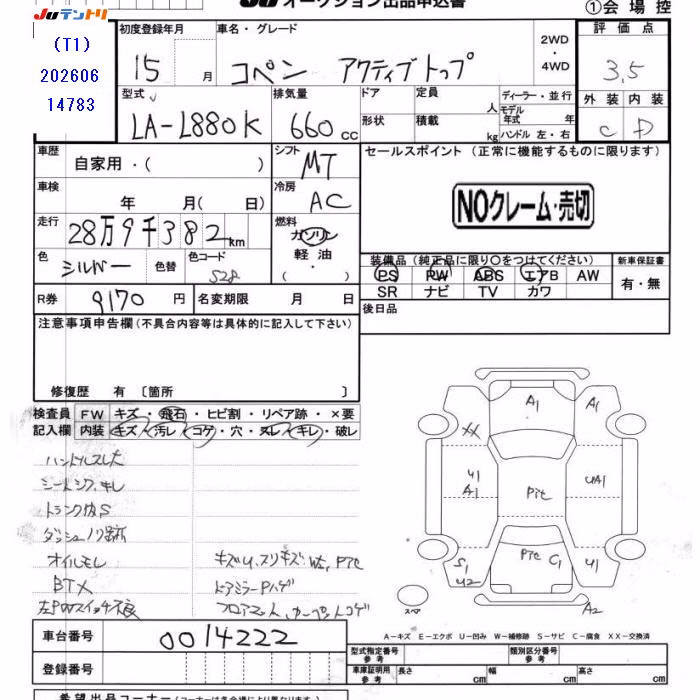 JUテントリ オークション出品申込書 ①会場控
(T1)
202606
14783
初度登録年月 車名・グレード 2WD・4WD 評価点
15月 コペン アクティブトップ 3.5
型式 排気量 ドア 定員 人 ディーラー・並行 外装 内装
LA-L880K 660cc 形状 積載 kg モデル年式 年 ハンドル 左・右 C D
車歴 自家用・( ) シフト MT セールスポイント(正常に機能するものに限ります)
車検 年 月( 日) 冷房 AC NOクレーム・売切
走行 28万9千382km 燃料 ガソリン 軽油 ( ・ )
色 シルバー 色替 色コード S28
装備品(純正品に限り○をつけてください) 新車保証書
PS PW ABS エアB AW 有・無
SR ナビ TV カワ
R券 9170円 名変期限 月 日 後日品
注意事項申告欄(不具合内容等は具体的に記入して下さい)
修復歴 有〔箇所 〕
検査員 FW キズ・飛石・ヒビ割・リペア跡・×要
記入欄 内装 キズ・汚レ・コゲ・穴・スレ・キレ・破レ
ハンドルスレ大
シートシワ、キレ
トランク内S
ダッシュノリ跡
オイルモレ キズU、スリキズ
BTX ドアミラーPハゲ
左PWスイッチ不良 フロアマット、カーペットコゲ
A1
A1
XX
U1
A1
Pitε
UA1
S1
U2
Pitε
C1
U1
スペア
A2
A-キズ E-エクボ U-凹み W-補修跡 S-サビ C-腐食 XX-交換済
車台番号 0014222
登録番号
型式指定番号 参考 類別区分番号 参考
車庫証明用 参考 長さ cm 幅 cm 高さ cm
希望出品コーナー